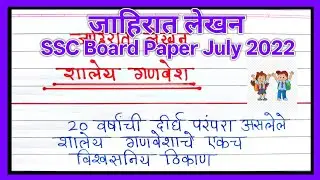 जाहिरात लेखन
SSC Board Paper July 2022
शालेय गणवेश
20 वर्षांची दीर्घ परंपरा असलेले
शालेय गणवेशाचे एकच
विश्वसनिय ठिकाण